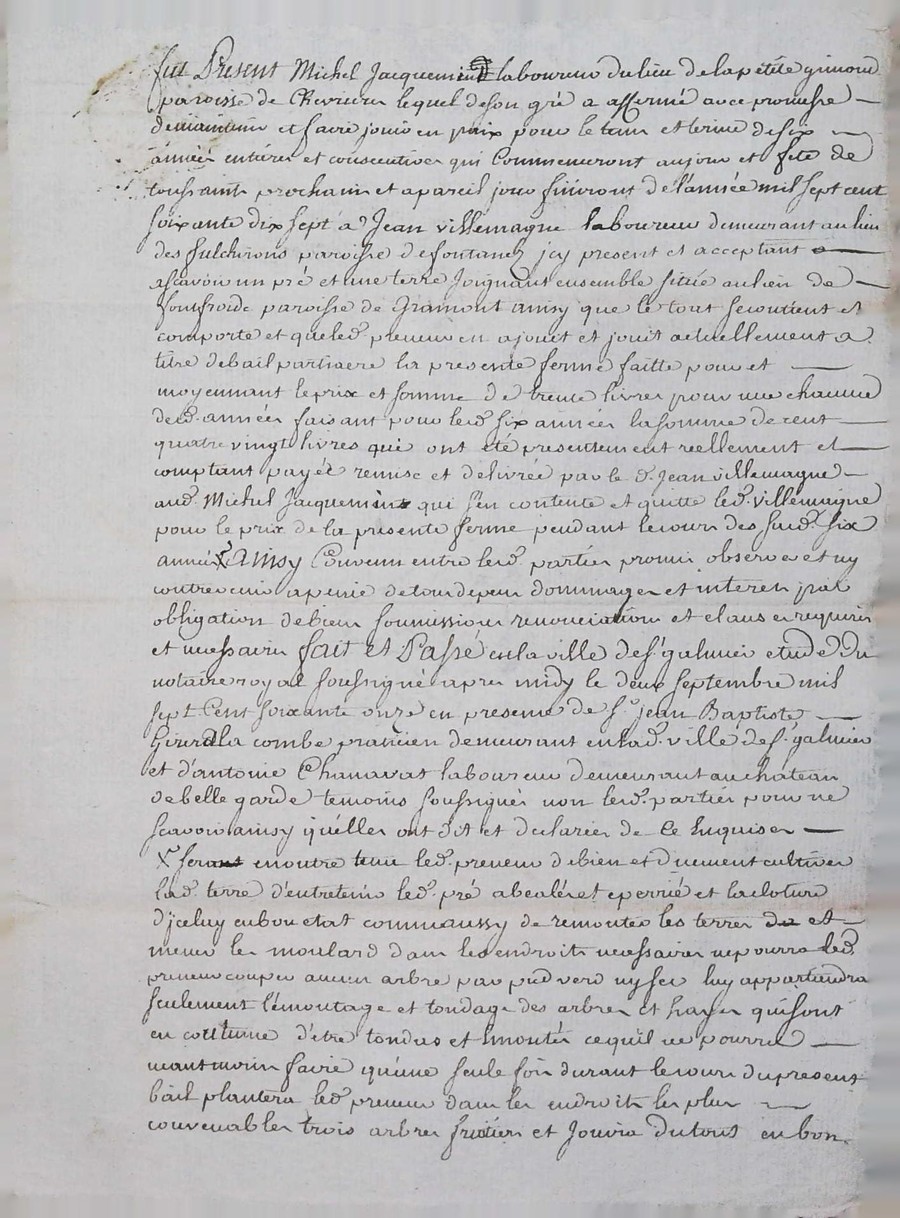 fut Present Michel Jacquemin laboureur du lieu de la petite gimond
paroisse de Chevrieres lequel de son gré a affermé avec promesse
de maintenir et faire jouir en paix pour le tems et terme de six
années entieres et consecutives qui Commenceront au jour et fete de
toussaints prochain et a pareil jour finiront de l'année mil sept cent
soixante dix sept a Jean villemagne laboureur demeurant au lieu
des fulchirons paroisse de fontanez jcy present et acceptant
ascavoir un pré et une terre Joignant ensemble située au lieu de
fonfroide paroisse de Gramont ainsy que le tout se contient et
comporte et que led. preneur en a jouit et jouit actuellement a
titre de bail partiaere la presente ferme faitte pour et
moyennant le prix et somme de trente livres pour une chaune
desd. années faisant pour lesd. six années la somme de cent
quatre vingt livres qui ont été presentement reellement et
comptant payée remise et delivrée par le d. Jean villemagne
aud. Michel Jacquemin qui s'en contente et quitte led. villemagne
pour le prix de la presente ferme pendant le cours des susd. six
années Ainsy Convenu entre lesd. parties promis observer et ny
contrevenir a peine de tous depens dommages et interets par
obligation de biens soumissions renonciations et clauses requises
et necessaires fait et Passé en la ville de st. galmier etude du
notaire royal soussigné apres midy le deux septembre mil
sept Cent soixante onze en presence de sr. jean Baptiste
Girard la combe praticien demeurant en lad. ville de st. galmier
et d'antoine Chanavat laboureur demeurant au chateau
de belle garde temoins soussignés non lesd. parties pour ne
scavoir ainsy qu'elles ont dit et declarées de Ce Enquises
sera en outre tenu led. preneur de bien et duement cultiver
lad. terre d'entretenir led. pré abealé et eperrié et la cloture
d'jceluy en bon etat comme aussy de remonter les terres et
mener les moulard dans les endroits necessaires ne pourra led.
preneur couper aucun arbre par pied verd ny sec luy appartiendra
seulement l'émontage et tondage des arbres et hayes qui sont
en coutume d'etre tondues et Emontés ce qu'il ne pourra
neantmoins faire qu'une seule fois durant le cours du present
bail plantera led. preneur dans les endroits les plus
convenables trois arbres fruitiers et Jouira du tout en bon